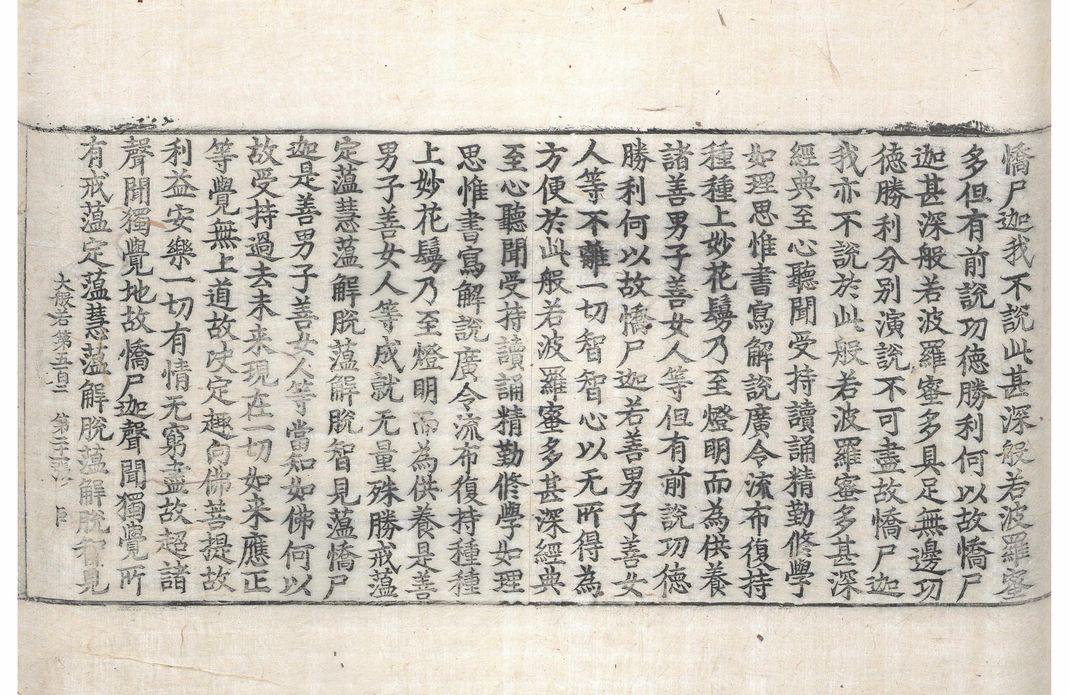 憍尸迦我不說此甚深般若波羅蜜
多但有前說功德勝利何以故憍尸
迦甚深般若波羅蜜多具足無邊功
德勝利分别演說不可盡故憍尸迦
我亦不說於此般若波羅蜜多甚深
經典至心聽聞受持讀誦精勤修學
如理思惟書寫解說廣令流布復持
種種上妙花鬘乃至燈明而為供養
諸善男子善女人等但有前說功德
勝利何以故憍尸迦若善男子善女
人等不離一切智智心以无所得為
方便於此般若波羅蜜多甚深經典
至心聽聞受持讀誦精勤修學如理
思惟書寫解說廣令流布復持種種
上妙花鬘乃至燈明而為供養是善
男子善女人等成就无量殊勝戒蕰
定蕰慧蕰解脫蕰解脫智見蕰憍尸
迦是善男子善女人等當知如佛何以
故受持過去未来現在一切如来應正
等覺無上道故决定趣向佛菩提故
利益安樂一切有情无窮盡故超諸
聲聞獨覺地故憍尸迦聲聞獨覺所
有戒蕰定蕰慧蕰解脫蕰解脫智見
大般若第五百二 第二十張